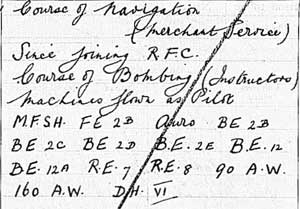 Course of Navigation
(Merchant Service)
Since joining R.F.C.
Course of Bombing (Instructors)
Machines flown as Pilot
M.F.SH. FE 2B Avro BE 2B
BE 2C BE 2D B.E. 2E B.E. 12
B.E. 12A R.E. 7 R.E. 8 90 A.W.
160 A.W. D.H. VI